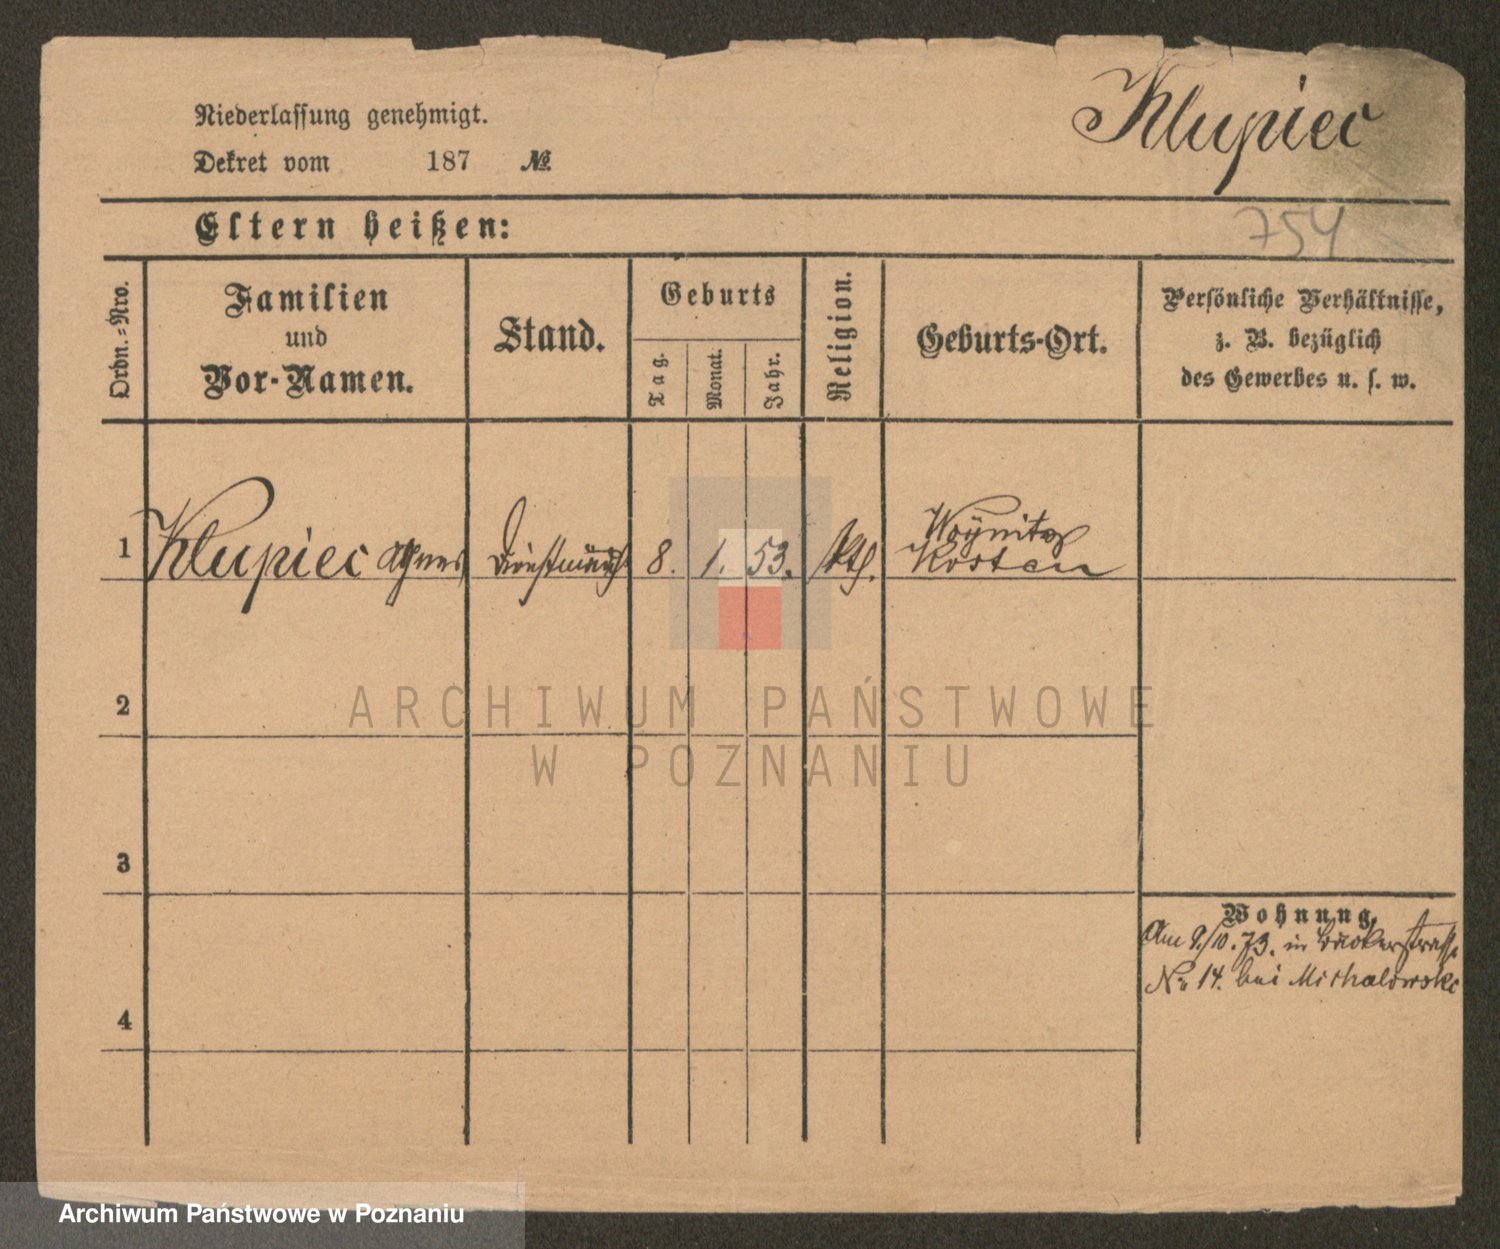 Niederlassung genehmigt.
Klupiec
Dekret vom 187 №
Eltern heißen:
754
Ordn.-Nro.
Familien
und
Vor-Namen.
Stand.
Geburts
Tag.
Monat.
Jahr.
Religion.
Geburts-Ort.
Persönliche Verhältnisse,
z. B. bezüglich
des Gewerbes u. s. w.
1 Klupiec Agnes 8. 1. 53. kth. Woynitz
Kosten
2
ARCHIWUM PAŃSTWOWE
W POZNANIU
3
Wohnung.
Am 9./10. 73. in Bäckerstrasse
No 14. bei Michalowski
4
Archiwum Państwowe w Poznaniu